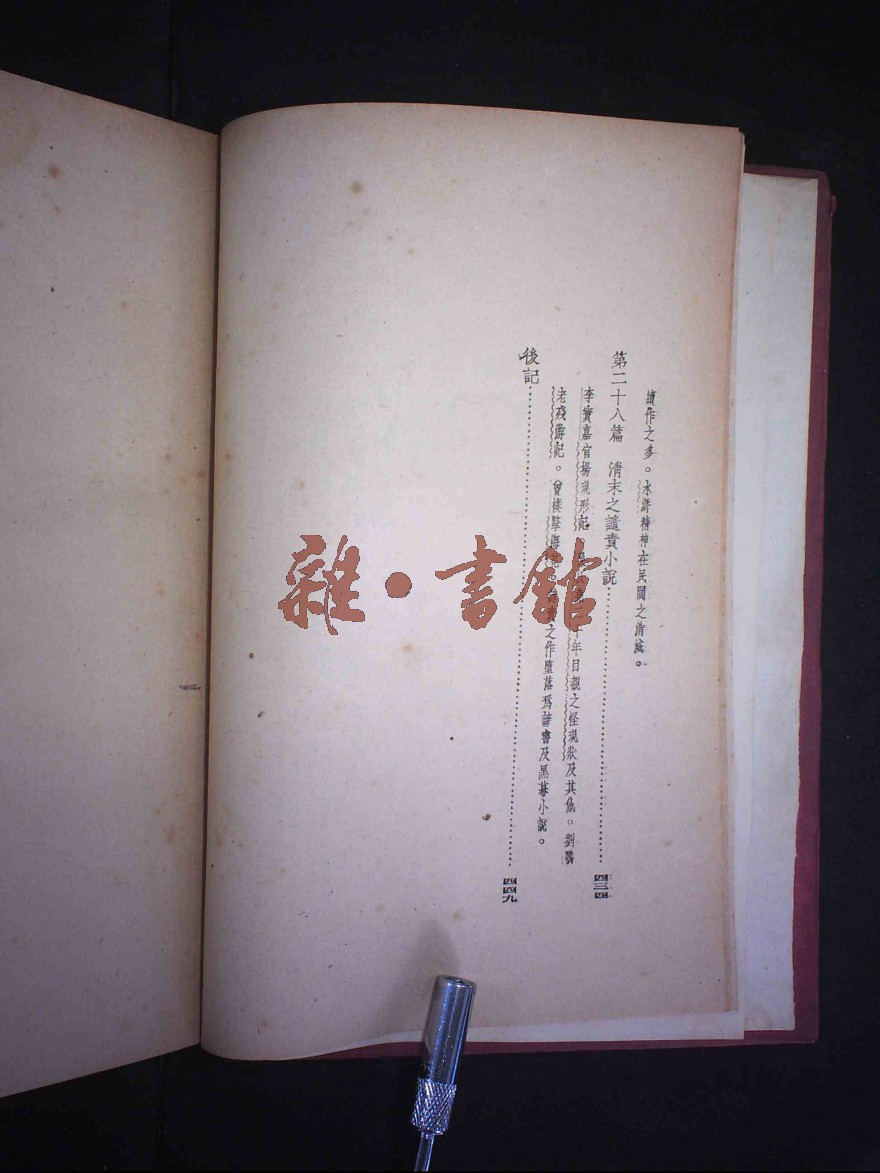 續作之多。水滸精神在民間之消滅。
第二十八篇 清末之譴責小說 四三四
李寶嘉官場現形記 年目覩之怪現狀及其他。劉鶚
老殘游記。曾樸孽海 之作墮落爲謗書及黑幕小說。
後記 四四九
雜·書館